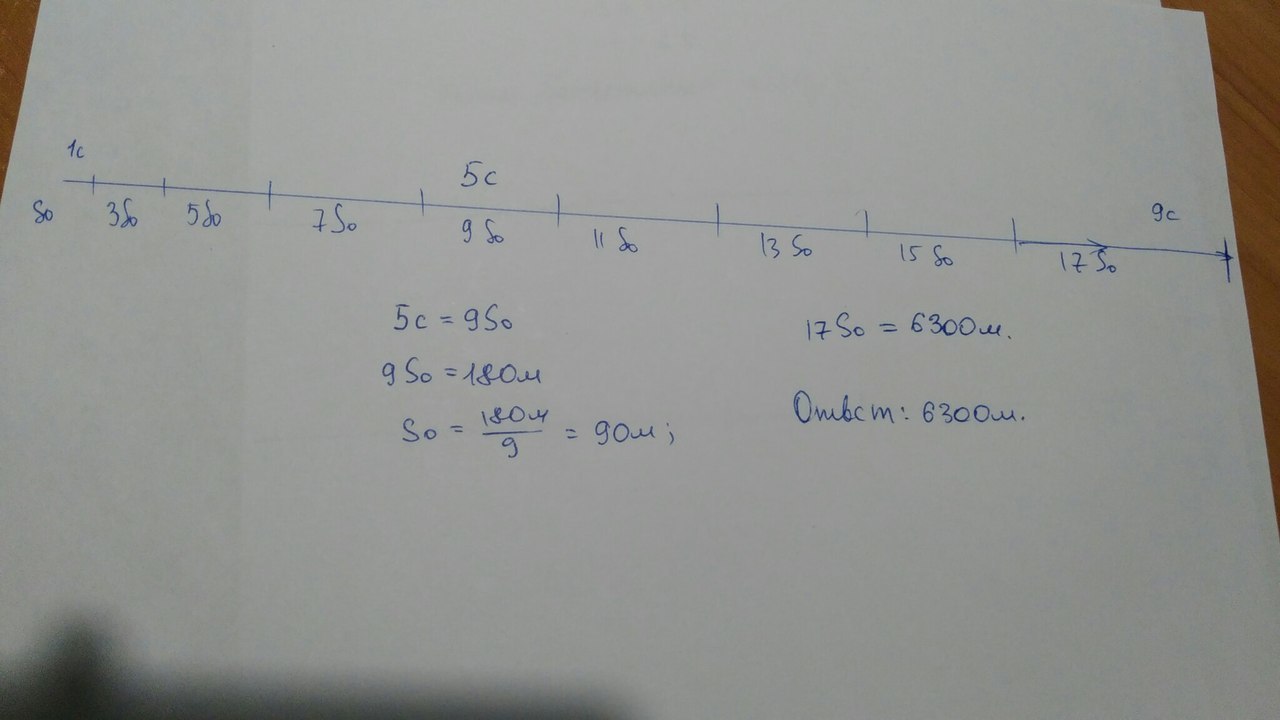 1с
5с
9с
S₀ 3S₀ 5S₀ 7S₀ 9S₀ 11S₀ 13S₀ 15S₀ 17S₀
5с = 9S₀
9S₀ = 180м
S₀ = 180м / 9 = 90м;
17S₀ = 6300м.
Ответ: 6300м.